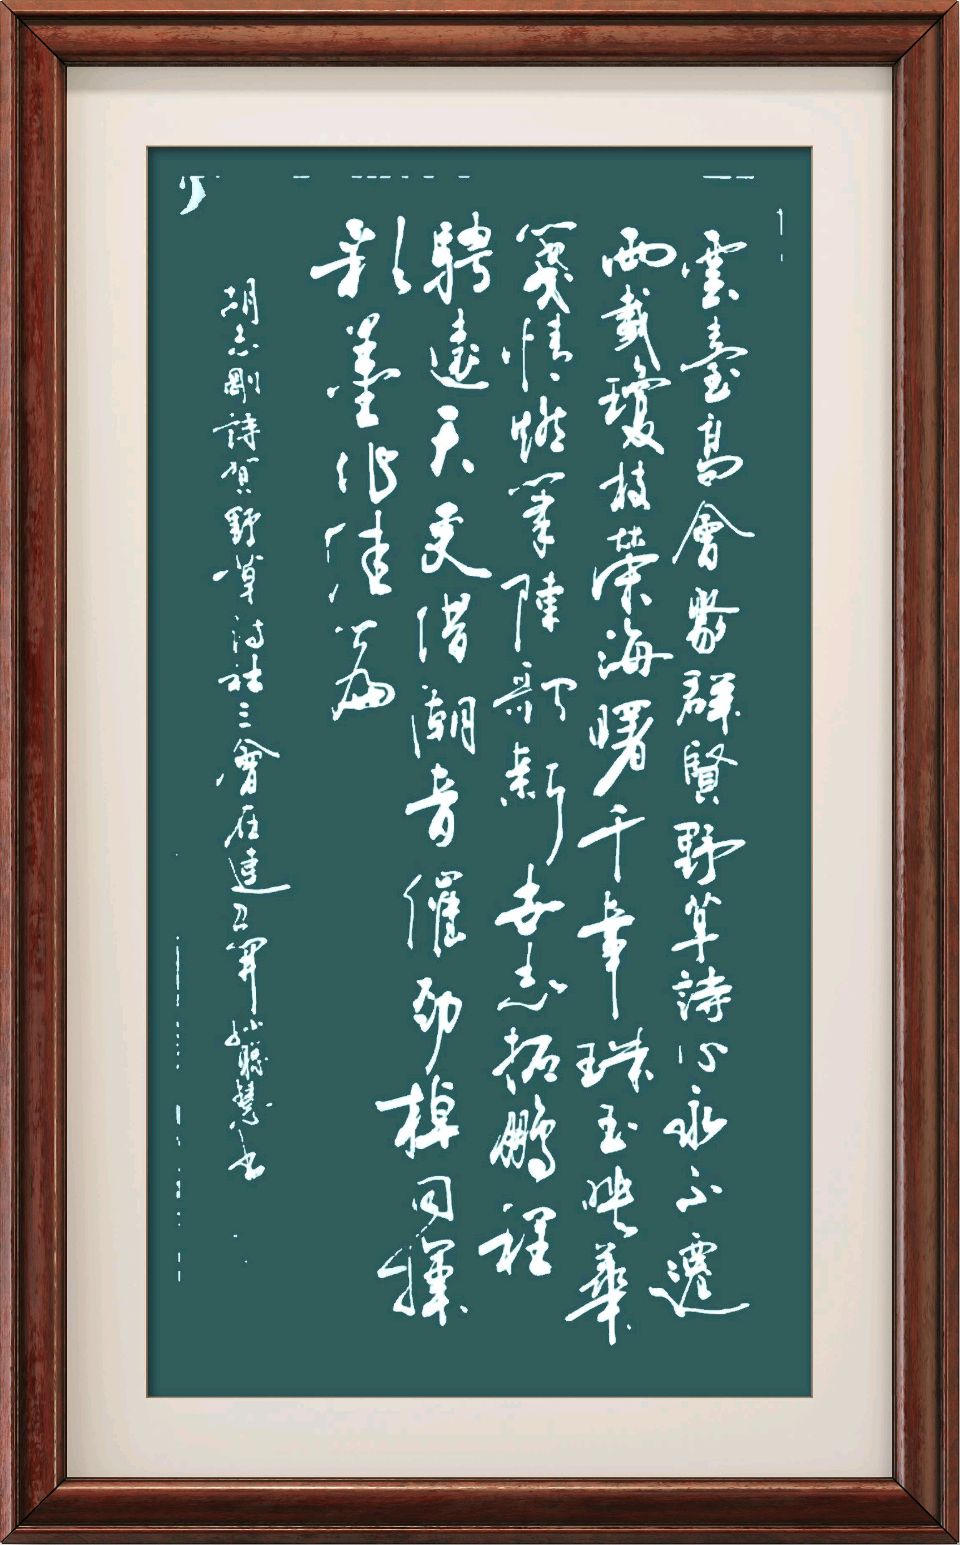 雲臺高會聚群賢野草詩心永不遷
兩載瓊枝榮海曙千章珠玉映華
箋情燃筆陣歌新世志拓鵬程
騁遠天更借潮音催勁棹同揮
彩墨作佳篇
胡志剛詩賀野草詩社三會在連召開慧書